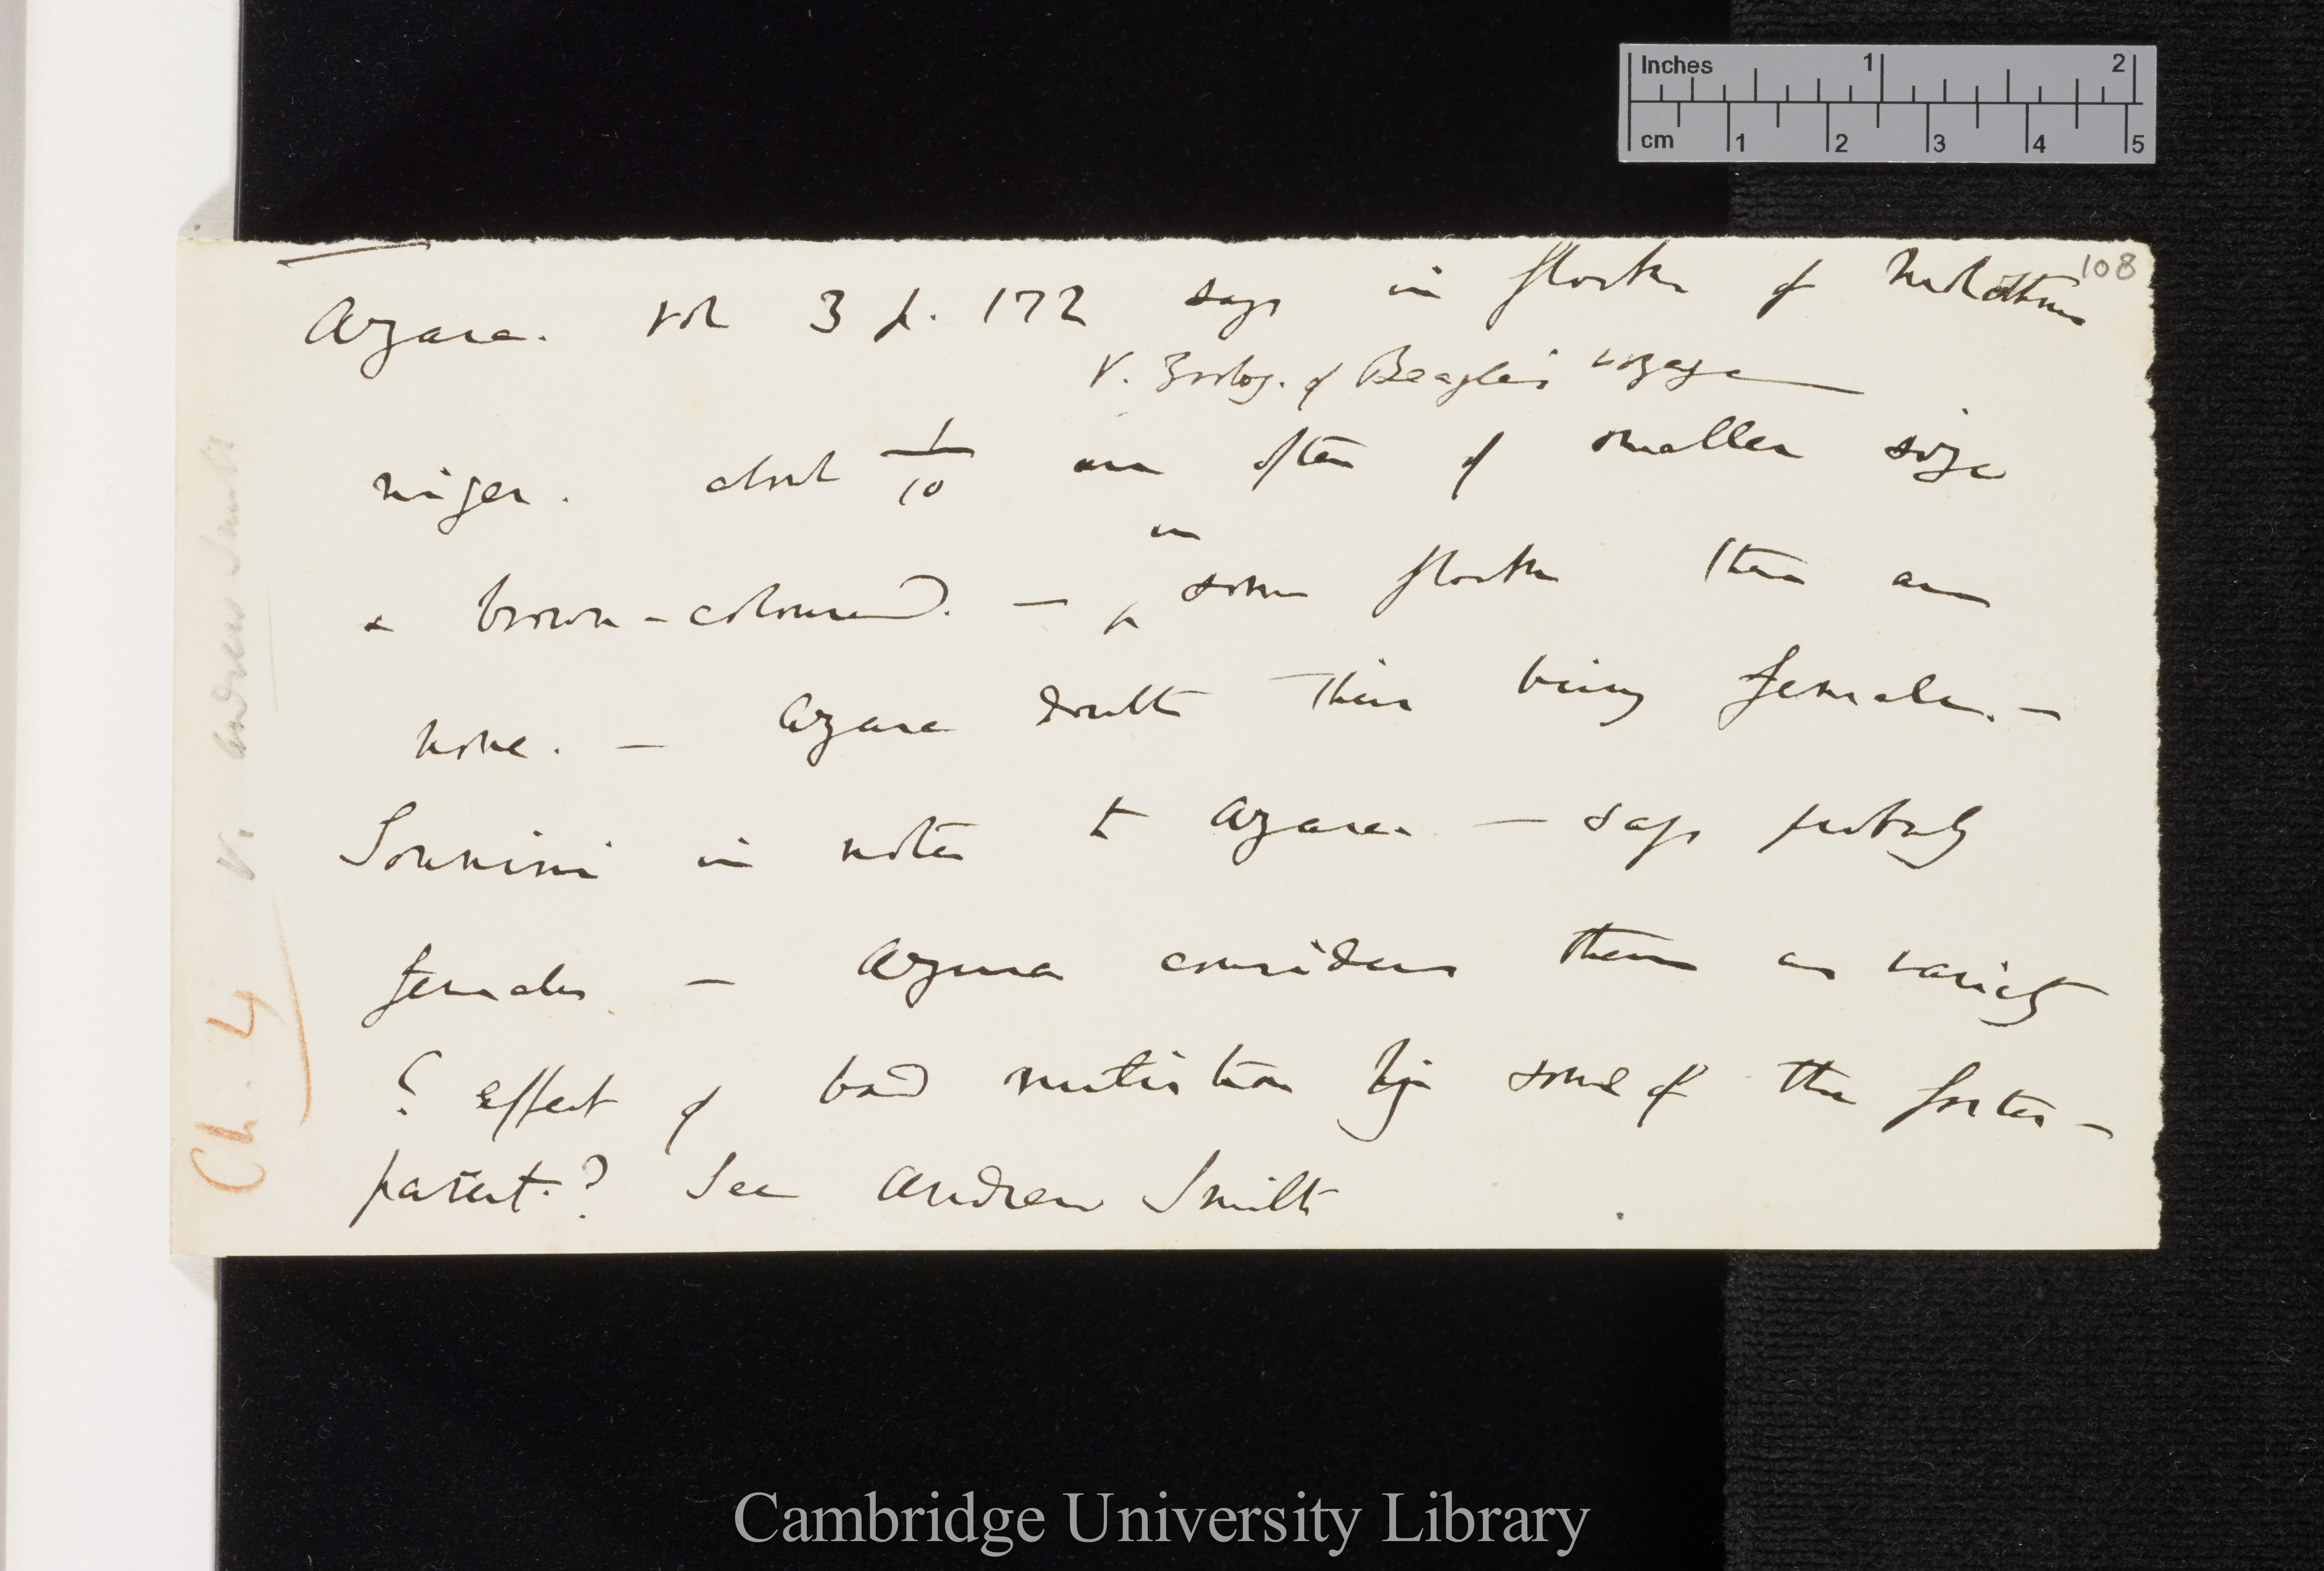 Inches 1 2
cm 1 2 3 4 5
108
Azara. vol 3 p. 172 says in flocks of Molothrus
V. Zoolog. of Beagle's voyage
niger. about 1/10 are often of smaller size
& brown-coloured. — in some flocks there are
none. — Azara doubts their being females. —
Sonnini in notes to Azara. — says probably
females — Azara considers them as variety
? effect of bad nutrition by some of the foster-
parent.? See Andrew Smith
V. Andrew Smith
Ch. 4
Cambridge University Library